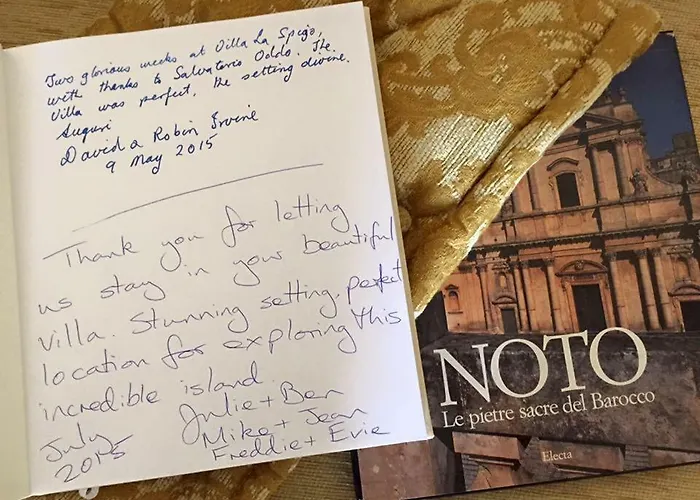 Two glorious weeks at Villa La Spigo,
with thanks to Salvatorio Oddo. The
Villa was perfect, the setting divine.
Auguri
David a Robin Irvine
9 May 2015
Thank you for letting
us stay in your beautiful
villa. Stunning setting, perfect
location for exploring this
incredible island.
Julie + Ben
July Mike + Jean
2015 Freddie + Evie
NOTO
Le pietre sacre del Barocco
Electa